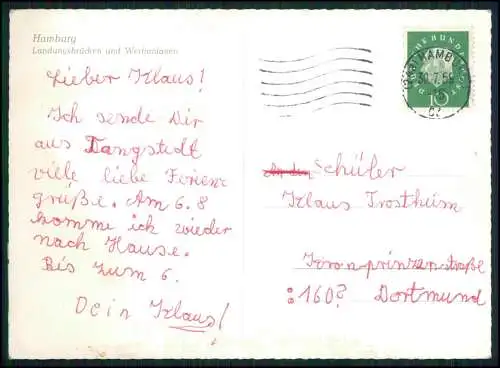 Hamburg
Landungsbrücken und Werftanlagen
Lieber Klaus!
Ich sende Dir
aus Tangstedt
viele liebe Ferien-
grüße. Am 6.8
komme ich wieder
nach Hause.
Bis zum 6.
Dein Klaus!
DEUTSCHE BUNDESPOST
10
HAMBURG
Schüler
Klaus Trostheim
Kronprinzenstraße
:160? Dortmund